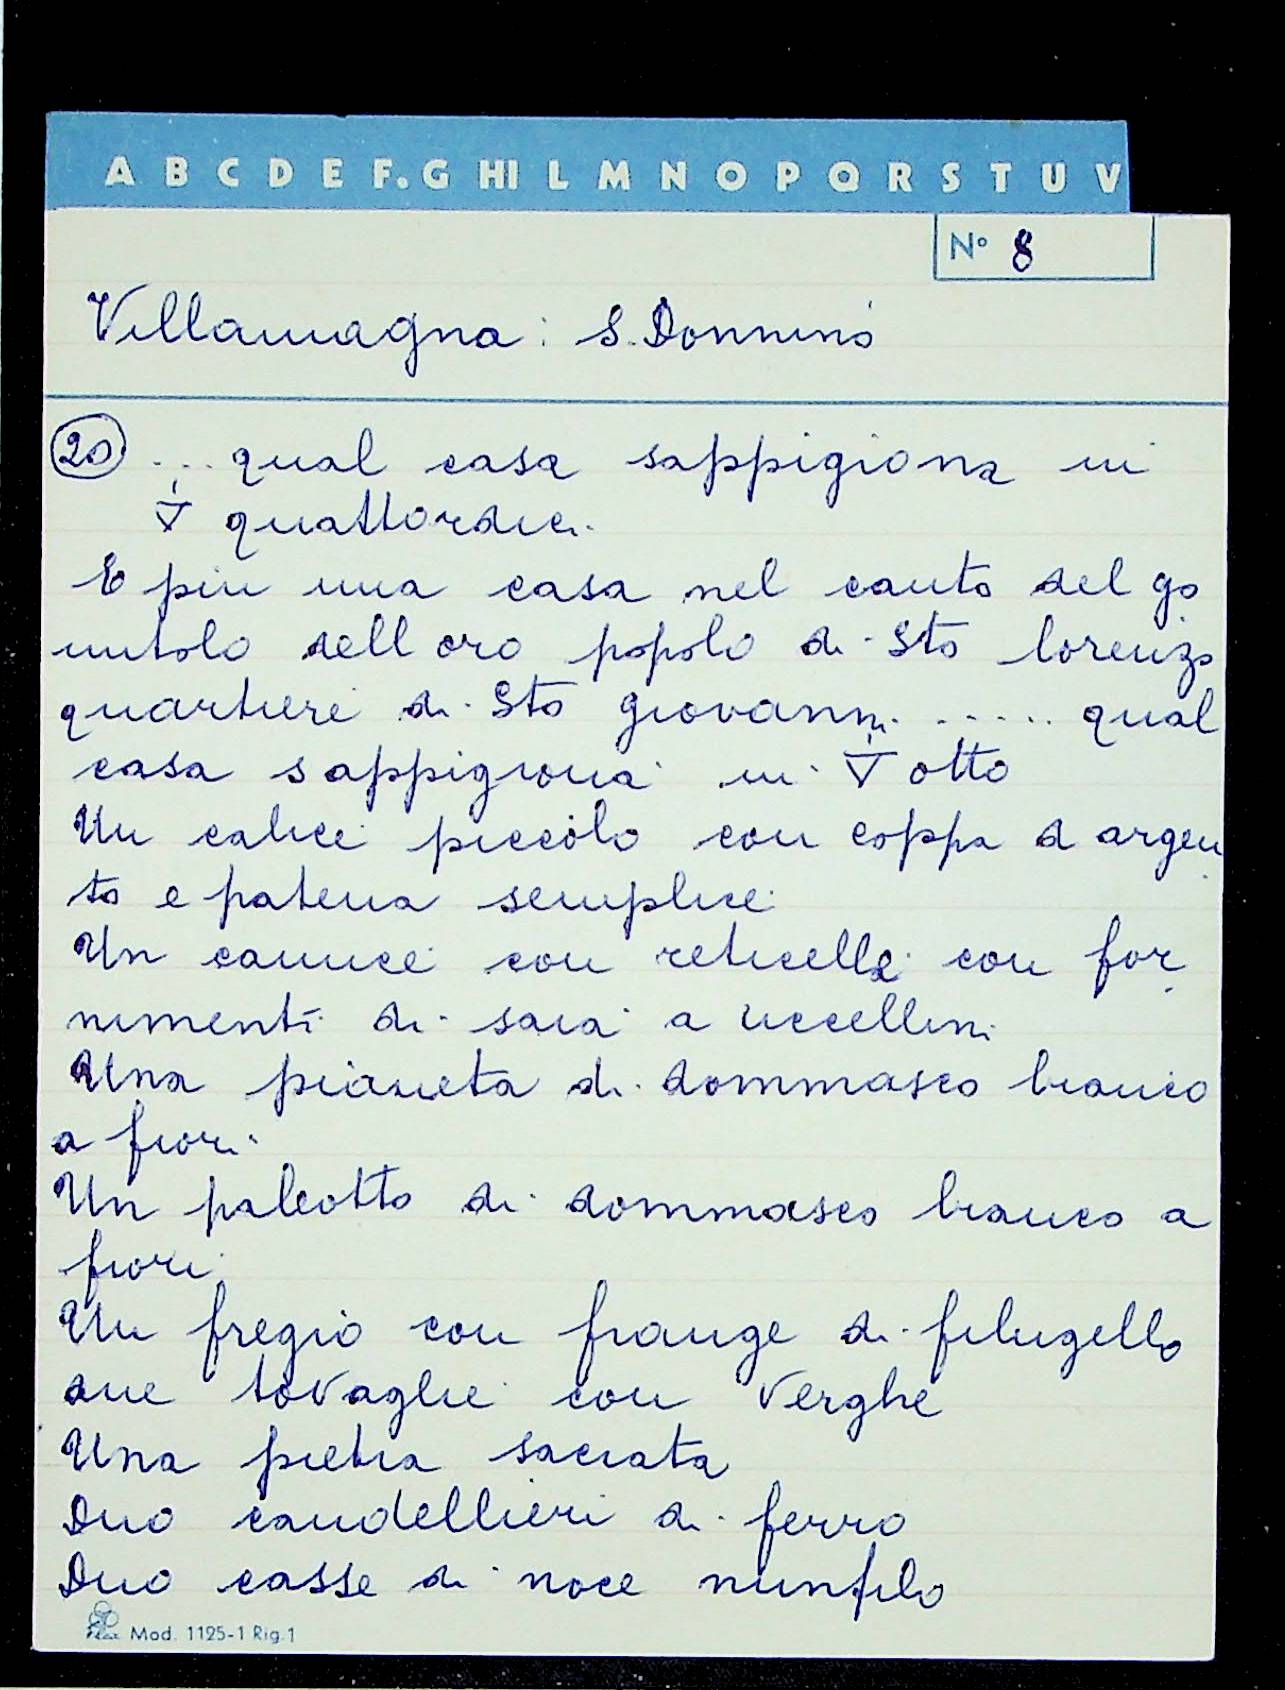 A B C D E F. G HI L M N O P Q R S T U V
N° 8
Villamagna: S. Donnino
20 ... qual casa sappigiona in
▽ quattordici.
E piu una casa nel canto del go
mitolo dell oro popolo di Sto lorenzo
quartiere di Sto giovanni ..... qual
casa sappigiona in ▽ otto
Un calice piccolo con coppa d argen
to e patena semplice
Un camice con reticelle con for
nimenti di saia a uccellini
Una pianeta di dommasco bianco
a fiori
Un paleotto di dommasco bianco a
fiori
Un fregio con frange di filugello
due tovaglie con verghe
Una pietra sacrata
Duo candellieri di ferro
Duo casse di noce nunfilo
Mod. 1125-1 Rig.1